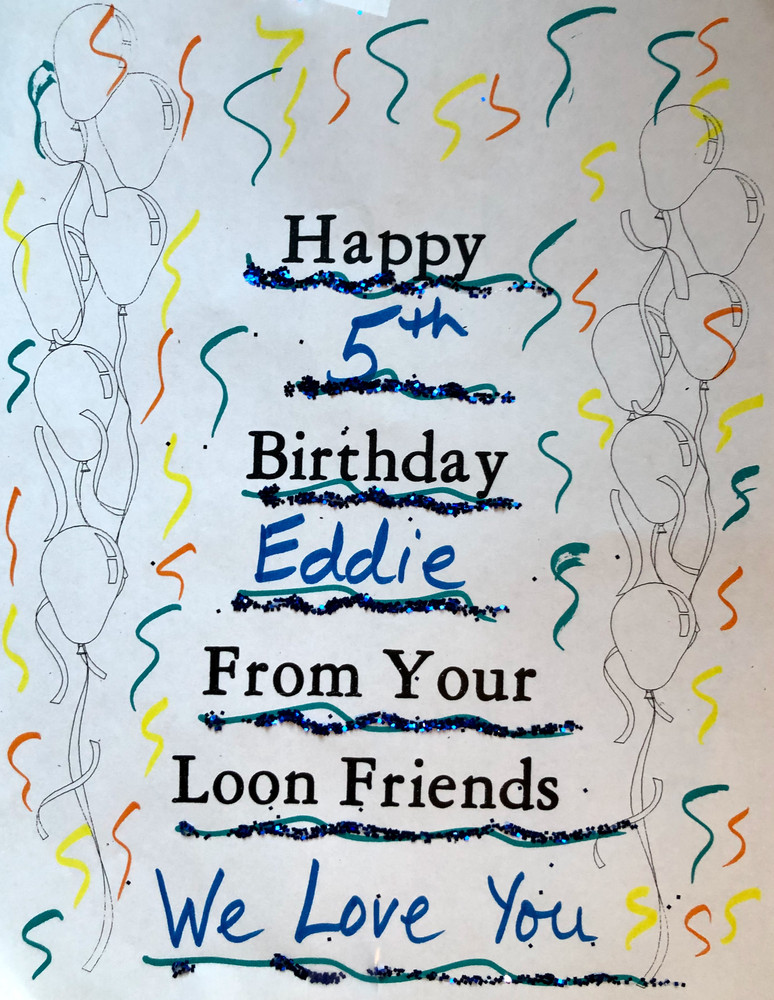 Happy
5th
Birthday
Eddie
From Your
Loon Friends
We Love You